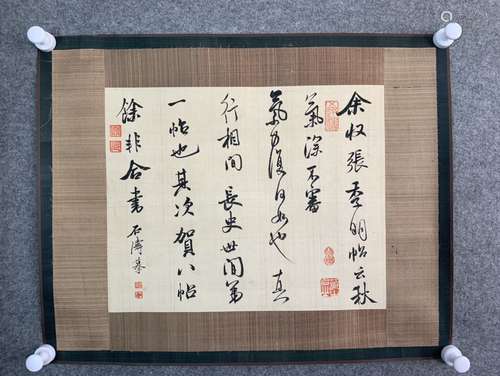 余收張季明帖云秋
氣深不審
氣力復何如也真
行相間長史世間第
一帖也其次賀八帖
餘非合書
石濤摹